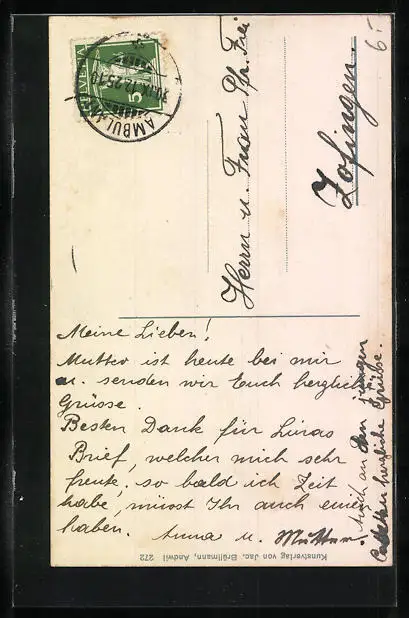 6.-
HELVETIA
5
AMBULANT
12.25.10
Herrn u. Frau Pfr. Frei
Zofingen.
Meine Lieben!
Mutter ist heute bei mir
u. senden wir Euch herzlich
Grüsse.
Besten Dank für Linas
Brief, welcher mich sehr
freute, so bald ich Zeit
habe, müsst Ihr auch einen
haben. Anna u. Mutter.
Auch an den jungen
herzliche Grüsse.
Kunstverlag von Jac. Brüllmann, Andwil 272